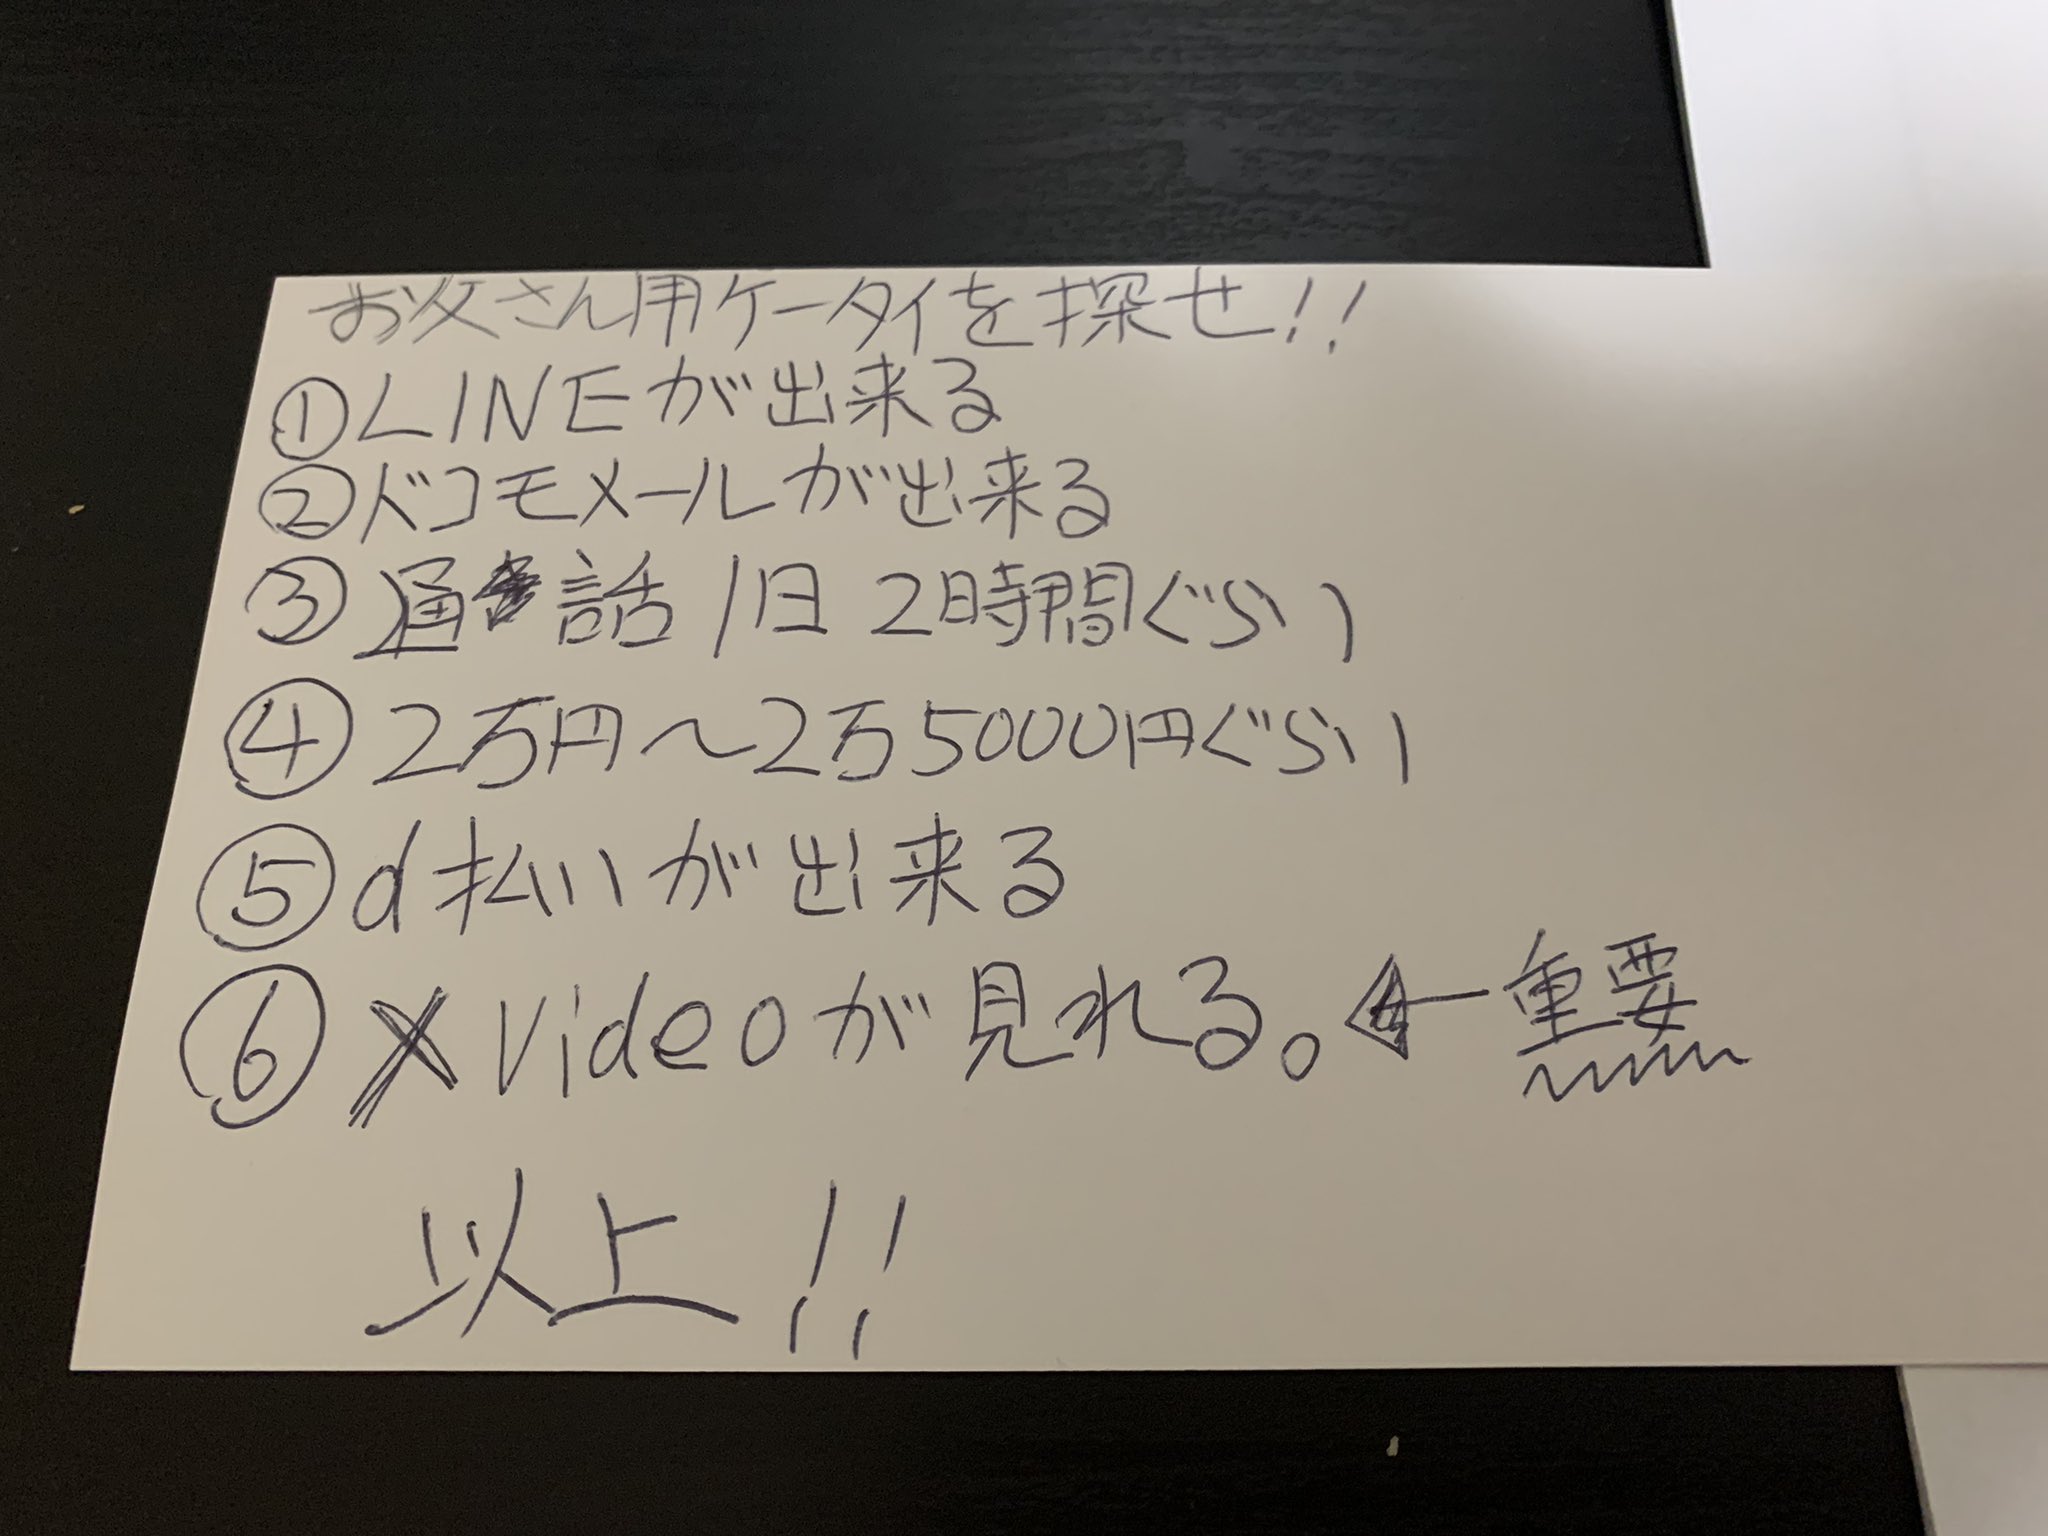 お父さん用ケータイを探せ!!
①LINEが出来る
②ドコモメールが出来る
③通話1日2時間ぐらい
④2万円～2万5000円ぐらい
⑤d払いが出来る
⑥XVideoが見れる。←重要
以上!!